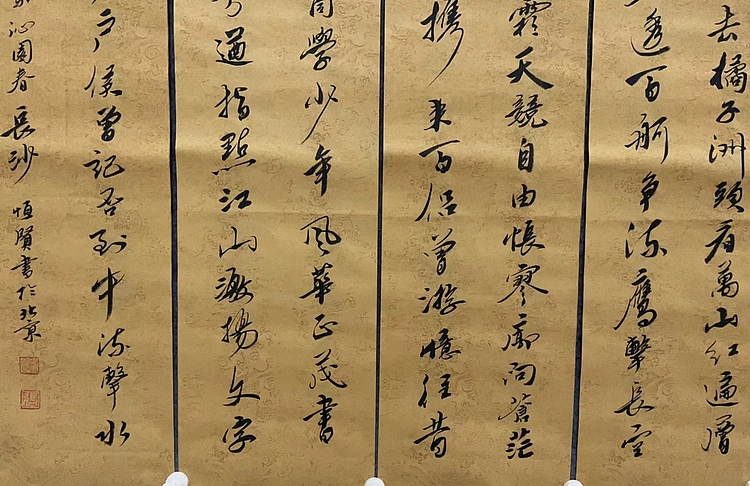 去橘子洲頭看萬山紅遍層
透百舸争流鷹擊長空
霜天競自由悵寥廓問蒼茫
攜来百侣曾游憶往昔
同學少年風華正茂書
遒指點江山激揚文字
户侯曾記否到中流擊水
沁園春 長沙 恒賢書於北京